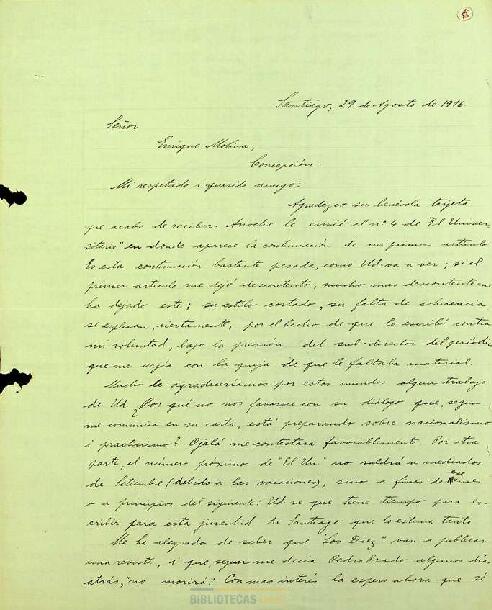 Santiago, 29 de Agosto de 1916.
Señor
Enrique Molina,
Concepción
Mi respetado i querido amigo:
Agradezco su tarjeta
que acabo de recibir. Anoche le envié el nº 4 de "El Univer
sitario" en donde aparece la continuación de mi primer artículo.
Es esta continuación bastante pesada, como Ud va a ver; si el
primer artículo me dejó descontento, mucho mas descontento me
ha dejado este; su estilo cortado, su falta de
se esplican, ciertamente, por el hecho de que lo escribí contra
mi voluntad, bajo la presión del sub-director del periódico
que me vejía con la queja de que le faltaba material.
Mucho le agradeceríamos por estos mundos algun trabajo
de Ud ¿Por qué no nos favorece con su diálogo que, segun
me comunica en su carta, está preparando sobre nacionalismo
i ? Ojalá me contestara favorablemente. Por otra
parte, el número próximo de "El Uni" no saldrá a mediados
de Setiembre (debido a las vacaciones), sino a fines de ese mes
o a principios del siguiente: Ud ve que tiene tiempo para es-
cribir para esta juventud de Santiago que lo estima tanto
Me he alegrado de saber que "Los Diez" van a publicar
una revista, i que segun me decia Pedro Prado algunos dias
atrás, ¡no morirá! Con mas interés la espero ahora que sé
BIBLIOTECAS